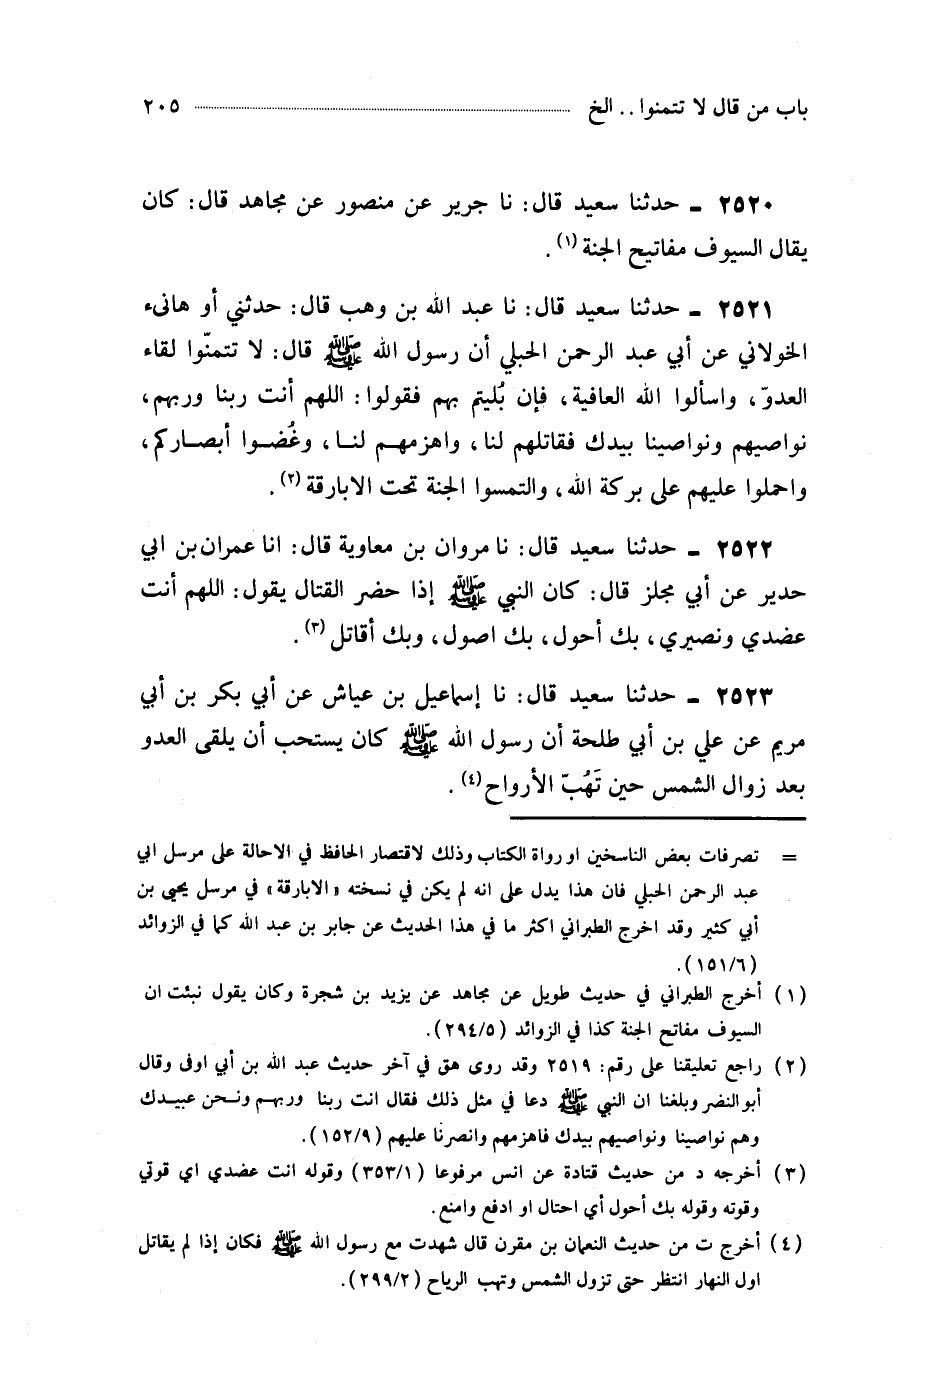 باب من قال لا تتمنوا . . الخ ٢٠٥
٢٥٢٠ ـ حدثنا سعيد قال: نا جرير عن منصور عن مجاهد قال: كان
يقال السيوف مفاتيح الجنة (١) .
٢٥٢١ ـ حدثنا سعيد قال: نا عبد الله بن وهب قال: حدثني أو هانىء
الخولاني عن أبي عبد الرحمن الحبلي أن رسول الله ﷺ قال: لا تتمنّوا لقاء
العدوّ، واسألوا الله العافية، فإن بُليتم بهم فقولوا: اللهم أنت ربنا وربهم،
نواصيهم ونواصينا بيدك فقاتلهم لنا، واهزمهم لنا، وغُضوا أبصاركم،
واحملوا عليهم على بركة الله، والتمسوا الجنة تحت الابارقة (٢) .
٢٥٢٢ ـ حدثنا سعيد قال: نا مروان بن معاوية قال: انا عمران بن ابي
حدير عن أبي مجلز قال: كان النبي ﷺ إذا حضر القتال يقول: اللهم أنت
عضدي ونصيري، بك أحول، بك اصول، وبك أقاتل (٣) .
٢٥٢٣ ـ حدثنا سعيد قال: نا إسماعيل بن عياش عن أبي بكر بن أبي
مريم عن علي بن أبي طلحة أن رسول الله ﷺ كان يستحب أن يلقى العدو
بعد زوال الشمس حين تَهُبّ الأرواح (٤) .
= تصرفات بعض الناسخين او رواة الكتاب وذلك لاقتصار الحافظ في الاحالة على مرسل ابي
عبد الرحمن الحبلي فان هذا يدل على انه لم يكن في نسخته «الابارقة» في مرسل يحيى بن
أبي كثير وقد اخرج الطبراني اكثر ما في هذا الحديث عن جابر بن عبد الله كما في الزوائد
(١٥١/٦).
(١) أخرج الطبراني في حديث طويل عن مجاهد عن يزيد بن شجرة وكان يقول نبئت ان
السيوف مفاتح الجنة كذا في الزوائد (٢٩٤/٥).
(٢) راجع تعليقنا على رقم: ٢٥١٩ وقد روى هق في آخر حديث عبد الله بن أبي اوفى وقال
أبو النضر وبلغنا ان النبي ﷺ دعا في مثل ذلك فقال انت ربنا وربهم ونحن عبيدك
وهم نواصينا ونواصيهم بيدك فاهزمهم وانصرنا عليهم (١٥٢/٩).
(٣) أخرجه د من حديث قتادة عن انس مرفوعا (٣٥٣/١) وقوله انت عضدي اي قوتي
وقوته وقوله بك أحول أي احتال او ادفع وامنع.
(٤) أخرج ت من حديث النعمان بن مقرن قال شهدت مع رسول الله ﷺ فكان إذا لم يقاتل
اول النهار انتظر حتى تزول الشمس وتهب الرياح (٢٩٩/٢).